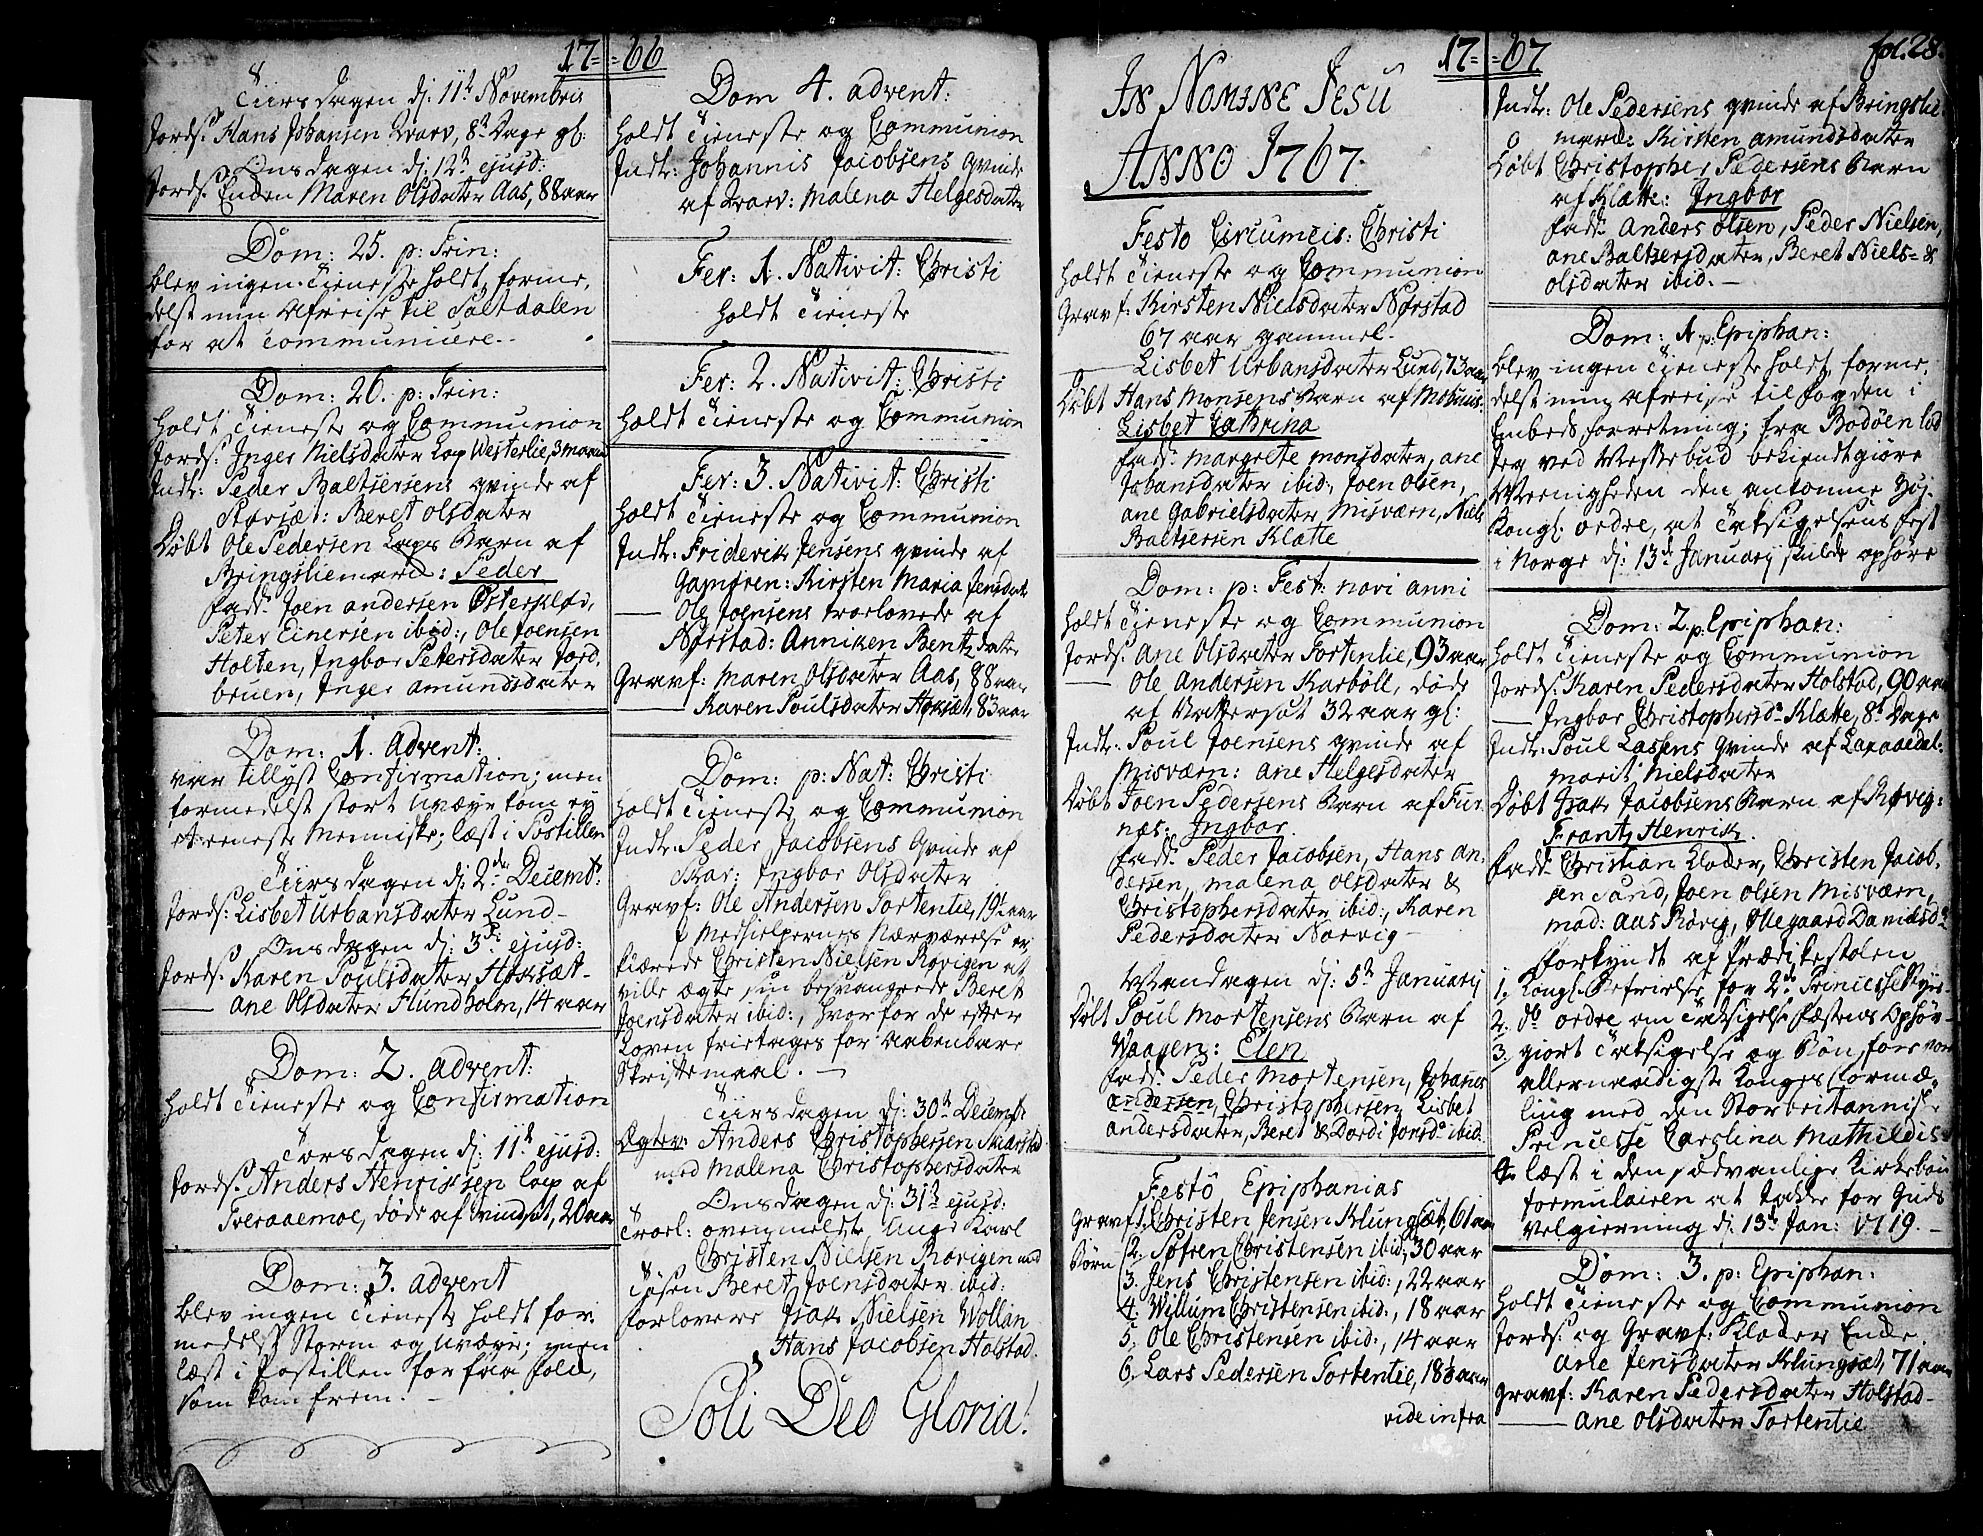 17=66
Tiirsdagen d: 11te Novembris
Jords: Hans Johansen Kvarv, 8te Dage gl:
Onsdagen d: 12te ejusd:
Jords: Enden Maren Olsdatter Aas, 88 aar
Dom: 25. p: Trin:
blev ingen Tieneste holdt, forme,
delst min Afreise til Saltdalen
for at communicere.
Dom: 26. p: Trin:
holdt Tieneste og Communion
Jords: Inger Nielsdatter Lap Westerlie, 3 maan
Indtr: Peder Baltzersens qvinde af
Storsæt: Beret olsdatter
Døbt Ole Pedersen Laps Barn af
Bringsliemard: Peder
fadd: Joen andersen Østerkløv,
Peter Einersen ibid:, Ole Joensen
Holten, Ingbor Petersdatter Jord,
bruen, Inger amundsdatter
Dom: 1. Advent:
var tillyst Confirmation; men
formedelst stort Uvæyr kom ey
et eeneste Menniske; læst i Postillen
Tiirsdagen d: 2den Decembr:
Jords: Lisbet Urbansdatter Lund
Onsdagen d: 3die ejusd:
Jords: Karen Poulsdatter Høksæt
— ane Olsdatter Flundholm, 14 aar
Dom: 2. advent:
holdt Tieneste og Confirmation
Torsdagen d: 11te ejusd:
Jords: Anders Henriksen Lap af
Tveraaemoe, døde af Svindsot, 20 aar
Dom: 3. advent
blev ingen Tieneste holdt for,
medelst Storm og Uvæyr; men
læst i Postillen for faa folk,
som kom frem.
Dom 4. advent:
holdt Tieneste og Communion
Indtr: Johannis Jacobsens qvinde
af Kvarv: Malena Helgesdatter
Fer: 1. Nativit: Christi
holdt Tieneste
Fer: 2. Nativit: Christi
holdt Tieneste og Communion
Fer: 3. Nativit: Christi
holdt Tieneste og Communion
Indtr: Friderik Jensens qvinde af
Gamfren: Kirsten Maria Jensdatter
— Ole Joensens trorlovede af
Nørstad: Anniken Bentzdatter
Gravf: Maren Olsdatter Aas, 88 aar
— Karen Poulsdatter Høksæt, 83 aar
Dom: p: Nat: Christi
holdt Tieneste og Communion
Indtr: Peder Jacobsens Qvinde af
Skar: Ingbor Olsdatter
Gravf: Ole Andersen Tortentie, 19½ aar
I Medhielpernes Nærværelse er
klærede Christen Nielsen Røvigen at
ville ægte sin besvangrede Beret
Joensdatter ibid:, hvorfor de efter
Loven frietages for aabenbare
Skriftemaal.
Tiirsdagen d: 30te Decembr
Ægtev: Anders Christophersen Skiarstad
med Malena Christophersdatter
Onsdagen d: 31te ejusd:
Trorl: ovenmeldte Unge Karl
Christen Nielsen Røvigen med
Tøsen Beret Joensdatter ibid:
forlovere Isak Nielsen Wollan
Hans Jacobsen Holstad.
Soli Deo Gloria!
17=67
IN NOMINE JESU
ANNO 1767.
Festo Circumcis: Christi
holdt Tieneste og Communion
Gravf: Kirsten Nielsdatter Nørstad
67 aar gammel.
— Lisbet Urbansdatter Lund, 73 aar
Døbt Hans Monsens Barn af Mohuus:
Lisbet CaTrina
fadd: Margrete monsdatter, ane
Johansdatter ibid:, Joen olsen,
ane Gabrielsdatter Misværn, Niels
Baltzersen Klætte
Dom: p: Fest: novi anni
holdt Tieneste og Communion
Jords: Ane Olsdatter Tortentie, 93 aar
— Ole Andersen Karbøll, døde
af 32 aar gl:
Indtr: Poul Joensens qvinde af
Misværn: ane Helgesdatter
Døbt Joen Pedersens Barn af Fur,
næs: Ingbor.
fadd: Peder Jacobsen, Hans an,
dersen, malena olsdatter &
Christophersdatter ibid:, Karen
Pedersdatter Norvig
Mandagen d: 5te Januarij
Døbt Poul Mortensens Barn af
Waagen: Elen
fadd: Peder Mortensen, Johanes
andersen, Christophersen, Lisbet
andersdatter, Beret & Dordi Jonsdr ibid.
Festô Epiphanias
Gravf: 1. Christen Jensen Klungsæt, 61 aar
Børn 2. Søfren Christensen ibid:, 30 aar
3. Jens Christensen ibid:, 22 aar
4. Willum Christensen ibid:, 18 aar
5. Ole Christensen ibid:, 14 aar
6. Lars Pedersen Tortentie, 18½ aar
vide infra
fol. 28.
Indtr: Ole Pedersens qvinde af Bringslie
mard: Kirsten amundsdatter
Døbt Christopher Pedersens Barn
af Klætte: Ingbor
fadd: Anders olsen, Peder Nielsen,
ane Baltzersdatter, Beret Niels= &
olsdatter ibid.
Dom: 1. p: Epiphan:
blev ingen Tieneste holdt, forme,
delst min afreise til fogden i
Embeds forretning; fra Bodøen lod
jeg ved visse bud bekiendtgiøre
Meenigheden den ankomne høj
Kongl: ordre, at Taksigelsens fest
i Norge d: 13de Januarij skulde ophøre
Dom: 2. p. Epiphan:
holdt Tieneste og Communion
Jords: Karen Pedersdatter Holstad, 90 aar
— Ingbor Christophersdr Klætte, 8te Dage
Indtr: Poul Lassens Qvinde af Laxaaedal:
marit Nielsdatter
Døbt Isak Jacobsens Barn af Røvig:
Frantz Henrik.
fadd: Christian Kloder, Christen Jacob,
sen Sand, Joen olsen Misværn,
mad: Aas Røvig, Ollegaard Danielsdr
forkyndt af Prædikestolen
1. Kongl: Befrielse for 2den Princesse Skyds
2. do ordre om Taksigelse fæstens Ophør
3. giort Taksigelse og Bøn, for vor
allernaadigste Konges formæ,
ling med den Storbritanniske
Princesse Carolina Mathildis
4. læst i den sædvanlige Kirkebøn
formulairen at takke for Guds
velgierning d: 13de Jan: 1719.
Dom: 3. p: Epiphan:
holdt Tieneste og Communion
Jords: og Gravf: Kloder Enke
ane Jensdatter Klungsæt, 71 aar
Gravf: Karen Pedersdatter Holstad
— ane Olsdatter Tortentie